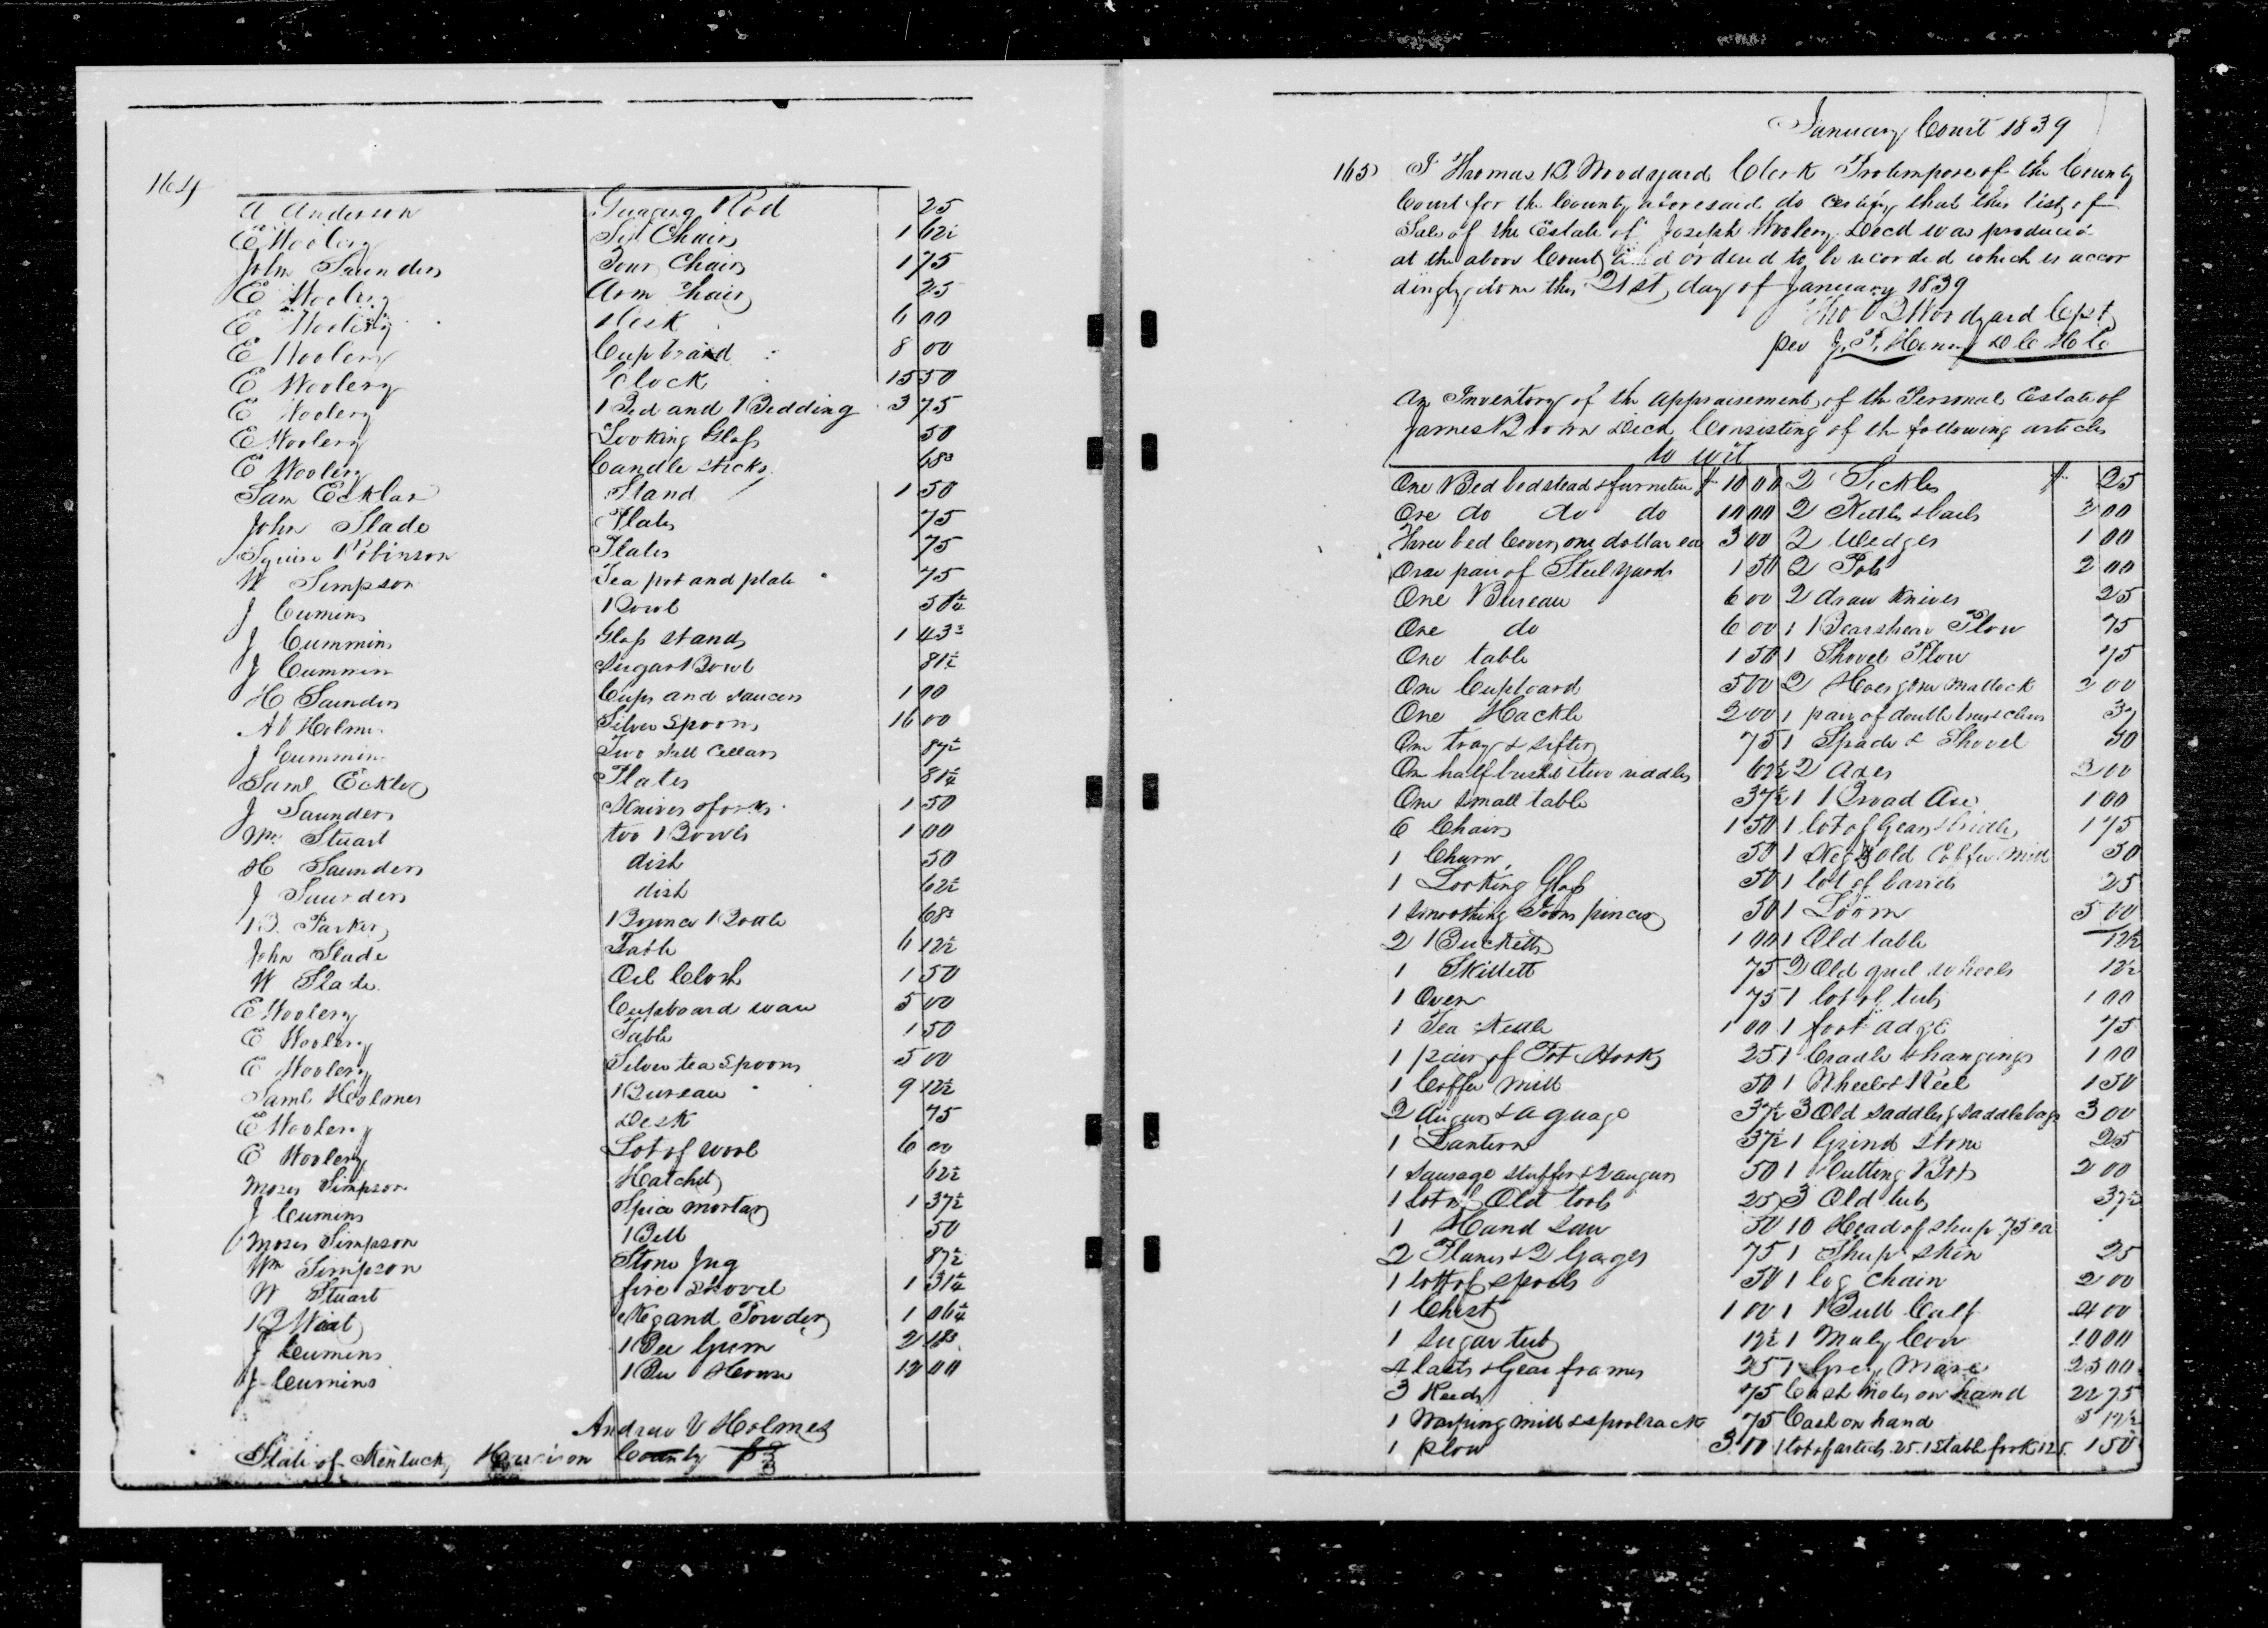 164
A Anderson Guaging Rod 25
E Woolery Six Chairs 1 62½
John Saunders Four Chairs 1 75
E Woolery Arm Chair 25
E Woolery Desk 6 00
E Woolery Cupboard 8 00
E Woolery Clock 15 50
E Woolery 1 Bed and Bedding 3 75
E Woolery Looking Glass 50
E Woolery Candle sticks 68³
Sam Ecklar Stand 1 50
John Slade Plates 75
Squire Robinson Plates 75
W Simpson Tea pot and plate 75
J Cumins Bowl
J Cummins Glass stands 1 43³
J Cummins Sugar Bowl 81¼
H Saunders Cups and saucers 1 00
A V Holmes Silver Spoons 16 00
J Cummins Two Salt Cellars 87½
Saml Eckler Plates 81¼
J Saunders Knives & forks 1 50
Wm Stuart two Bowls 1 00
H Saunders dish 50
J Saunders dish 62½
B. Parker Bottle 68³
John Slade Table 6 12½
W Slade Oil Cloth 1 50
E Woolery Cupboard ware 5 00
E Woolery Table 1 50
E Woolery Silver tea Spoons 5 00
Saml Holmes Bureau 9 12½
E Woolery Desk 75
E Woolery Lot of wool 6 00
Moses Simpson Hatchet 62½
J Cumins Spice mortar 1 37½
Moses Simpson Bell 50
Wm Simpson Stone Jug 87½
W Stuart fire shovel 1 31¼
Keg and Powder 1 06¼
J Cumins Bee Gum 2
J Cumins Bee House 12 00
Andrew V Holmes
State of Kentucky Harrison County
January Court 1839
165 I Thomas B Woodyard Clerk Protempore of the County
Court for the County aforesaid do certify that this list of
Sale of the Estate of Joseph Woolery Decd was produced
at the above County and ordered to be recorded which is accor
dingly done this 21st day of January 1839
Tho B Woodyard Cpt
per J. P. Henry D C H C
An Inventory of the appraisement of the Personal Estate of
James Brown Decd Consisting of the following articles
to wit
One Bed bedstead & furniture $ 10 00 2 Sickles $ 25
One do do do 10 00 2 Kettles & bails 3 00
Three bed Covers one dollar ea 3 00 2 Wedges 1 00
One pair of Steel yards 1 50 2 Pots 2 00
One Bureau 6 00 2 draw Knives 25
One do 6 00 1 Bearshear Plow 75
One table 1 50 1 Shovel Plow 75
One Cupboard 5 00 2 Hoes & one Mattock 2 00
One Hackle 2 00 1 pair of double 37
One tray & sifter 75 1 Spade & Shovel 50
One half bushel & two riddles 62½ 2 Axes 2 00
One small table 37½ 1 Broad Axe 1 00
6 Chairs 1 50 1 lot of Gears & bridles 1 75
1 Churn 50 1 Keg & old Coffee Mill 50
1 Looking Glass 50 1 lot of barrels 25
1 smoothing Irons pincers 50 1 Loom 5 00
2 Bucketts 1 00 1 Old table 12½
1 Skillett 75 2 Old wheels 12½
1 Oven 75 1 lot of tubs 1 00
1 Tea Kettle 1 00 1 foot adze 75
1 pair of Pot Hooks 25 1 Cradle & hangings 1 00
1 Coffee Mill 50 1 Wheel & Reel 1 50
2 Augurs & a guage 37½ 3 Old saddles & saddlebags 3 00
1 Lantern 37½ 1 Grind Stone 25
1 Sausage stuffer & 2 augurs 50 1 Cutting Box 2 00
1 lot of Old tools 25 3 Old tubs 37½
1 Hand Saw 50 10 Head of sheep .75 ea
2 Planes & 2 Gages 75 1 Sheep skin 25
1 lott of spools 50 1 log chain 2 00
1 Chest 1 00 1 Bull Calf 4 00
1 Sugar tub 12½ 1 Muly Cow 10 00
4 & Gear frames 25 1 Grey Mare 25 00
3 Reeds 75 Cash notes on hand 22 75
1 Warping mill & spoolrack 75 Cash on hand 5 12½
1 plow 3 00 1 lot of .25. 1 Stable fork 125. 1 50